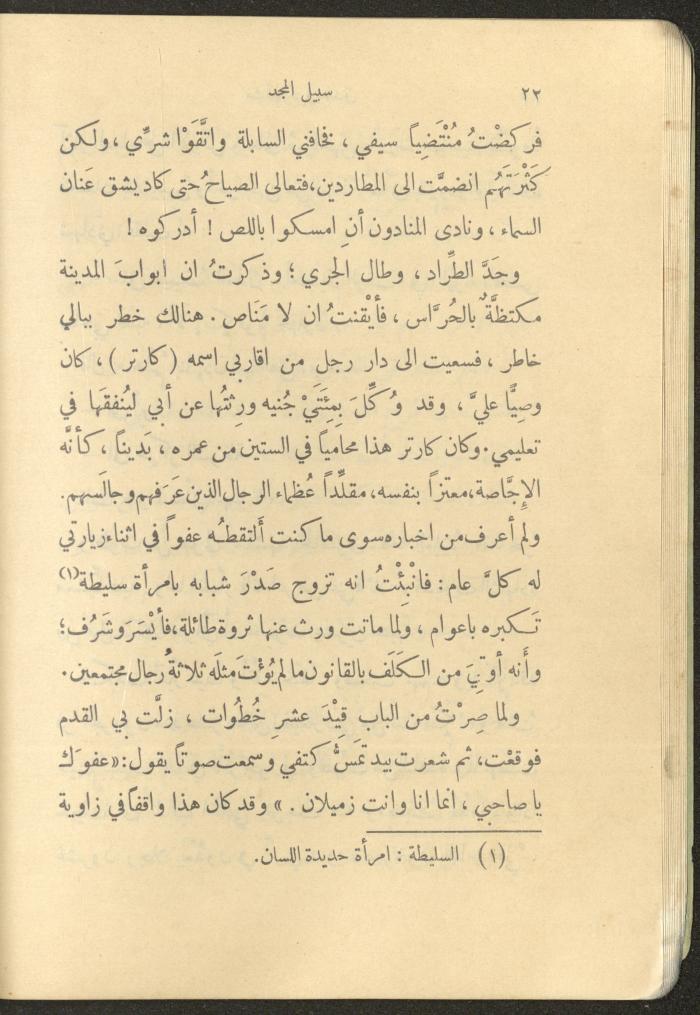 ٢٢
سبيل المجد
فركضْتُ مُنْتَضِياً سيفي ، فخافني السابلة واتَّقَوْا شرِّي ، ولكن
كَثْرَتَهُم انضمَّت الى المطاردين ، فتعالى الصياحُ حتى كاد يشق عَنان
السماء ، ونادى المنادون أنِ امسكوا باللص ! أدركوه !
وجَدَّ الطِّراد ، وطال الجري ؛ وذكرتُ ان ابوابَ المدينة
مكتظَّةٌ بالحُرَّاس ، فأيْقنتُ ان لا مَناص . هنالك خطر ببالي
خاطر ، فسعيت الى دار رجل من اقاربي اسمه ( كارتر ) ، كان
وصِيًّا عليَّ ، وقد وُكِّلَ بِمِئَتَيْ جُنيه ورِثتُها عن أبي ليُنفقَها في
تعليمي . وكان كارتر هذا محامياً في الستين من عمره ، بَديناً ، كأنَّه
الإِجَّاصة ، معتزاً بنفسه ، مقلِّداً عُظماء الرجال الذين عَرَفهم وجالَسهم .
ولم أعرف من اخباره سوى ما كنت ألتقطُه عفواً في اثناء زيارتي
له كلَّ عام : فانْبِئْتُ انه تزوج صَدْرَ شبابه بامرأة سليطة (١)
تَكبره باعوام ، ولما ماتت ورث عنها ثروة طائلة ، فأيْسَرَ وشَرُف ؛
وأَنه أوتِيَ من الكَلَف بالقانون ما لم يُؤْتَ مثلَه ثلاثةُ رجال مجتمعين .
ولما صِرْتُ من الباب قِيْدَ عشرِ خُطُوات ، زلَّت بي القدم
فوقعْت ، ثم شعرت بيد تمَسُّ كتفي وسمعت صوتاً يقول : « عفوَك
يا صاحبي ، انما انا وانت زميلان . » وقد كان هذا واقفاً في زاوية
(١) السليطة : امرأة حديدة اللسان .